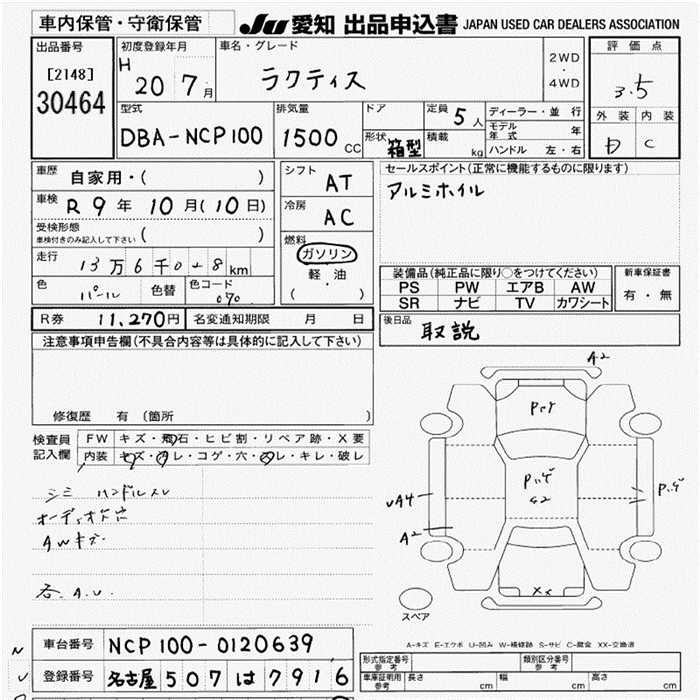 車内保管・守衛保管
JU 愛知 出品申込書 JAPAN USED CAR DEALERS ASSOCIATION
出品番号
[2148]
30464
初度登録年月
H 20 7月
車名・グレード
ラクティス
2WD
・
4WD
評価点
3.5
外装 内装
D C
型式
DBA-NCP100
排気量
1500 CC
ドア
形状 箱型
定員 5人
積載 kg
ディーラー・並行
モデル年式 年
ハンドル 左・右
車歴 自家用・( )
車検 R 9年 10月(10日)
受検形態
車検付きのみ記入して下さい ( )
走行 13万6千0-8km
色 パール 色替 色コード 070
シフト AT
冷房 AC
燃料
ガソリン
軽・油
( )
セールスポイント(正常に機能するものに限ります)
アルミホイル
装備品(純正品に限り○をつけてください)
PS PW エアB AW
SR ナビ TV カワシート
新車保証書
有・無
R券 11,270円 名変通知期限 月 日
後日品 取説
注意事項申告欄(不具合内容等は具体的に記入して下さい)
修復歴 有 (箇所 )
検査員記入欄
FW キズ・飛石・ヒビ割・リペア跡・X要
内装 キズ・汚レ・コゲ・穴・スレ・キレ・破レ
シミ ハンドルスレ
AWキズ
各.A.U.
A2
UA4
A2
XX
スペア
A-キズ E-エクボ U-凹み W-補修跡 S-サビ C-腐食 XX-交換済
車台番号 NCP100-0120639
登録番号 名古屋 507 は 7916
形式指定番号 参考
類別区分番号 参考
車庫証明用 参考 長さ cm 幅 cm 高さ cm